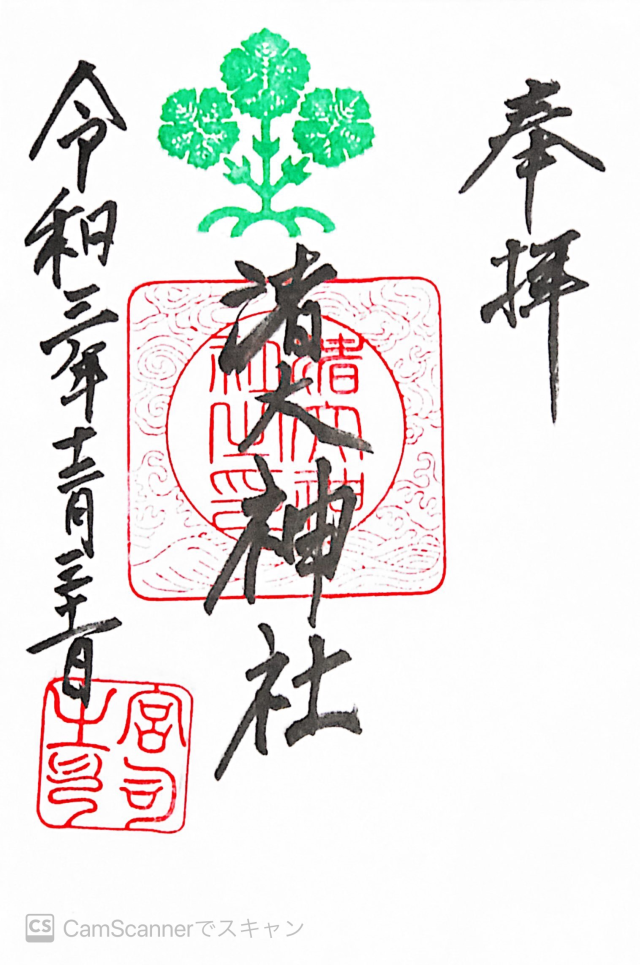 奉拝
渚大神社
渚大神社之印
令和三年十二月三十一日
宮司之印
CS CamScannerでスキャン